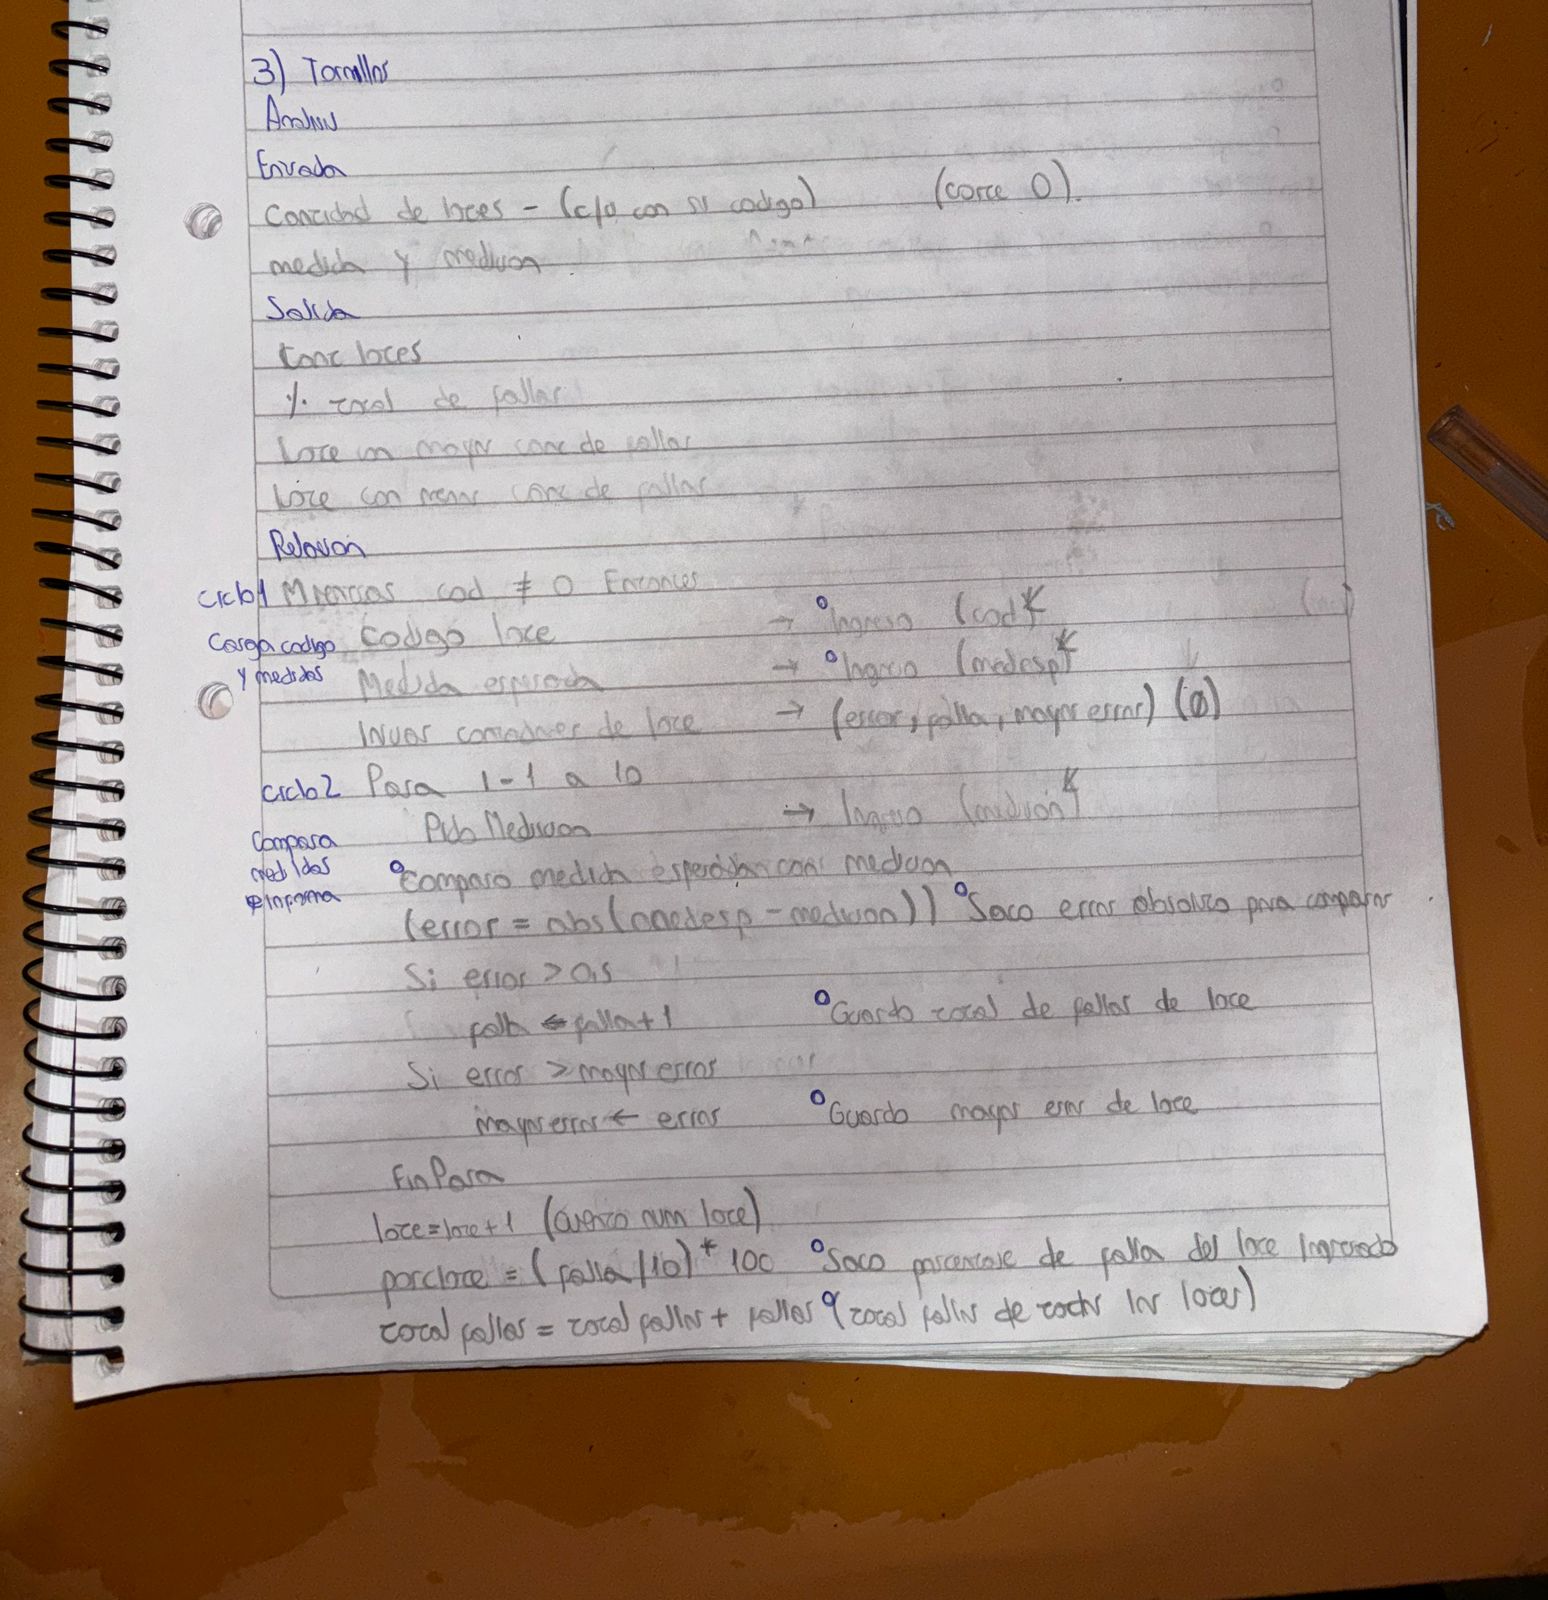 3) Tornillos
Analisis
Entrada
Cantidad de lotes - (c/u con su codigo) (corte 0).
medida y medicion
Salida
Cant lotes
% total de fallas
Lote con mayor cant de fallas
Lote con menor cant de fallas
Relacion
ciclo1 Mientras cod ≠ 0 Entonces
Carga codigo Codigo lote → °Ingreso (cod)*
y medidas Medida esperada → °Ingreso (medesp)*
Iniciar contadores de lote → (error, falla, mayor error) (0)
ciclo2 Para 1-1 a 10
Pido Medicion → Ingreso (medicion)*
Compara
medidas °Comparo medida esperada con medicion
e informa (error = abs(medesp - medicion)) °Saco error absoluto para comparar
Si error > 0,5
falla ← falla + 1 °Guardo total de fallas de lote
Si error > mayor error
mayor error ← error °Guardo mayor error de lote
FinPara
lote = lote + 1 (cuento num lote)
porclote = (falla/10) * 100 °Saco porcentaje de falla del lote Ingresado
total fallas = total fallas + fallas °(total fallas de todos los lotes)